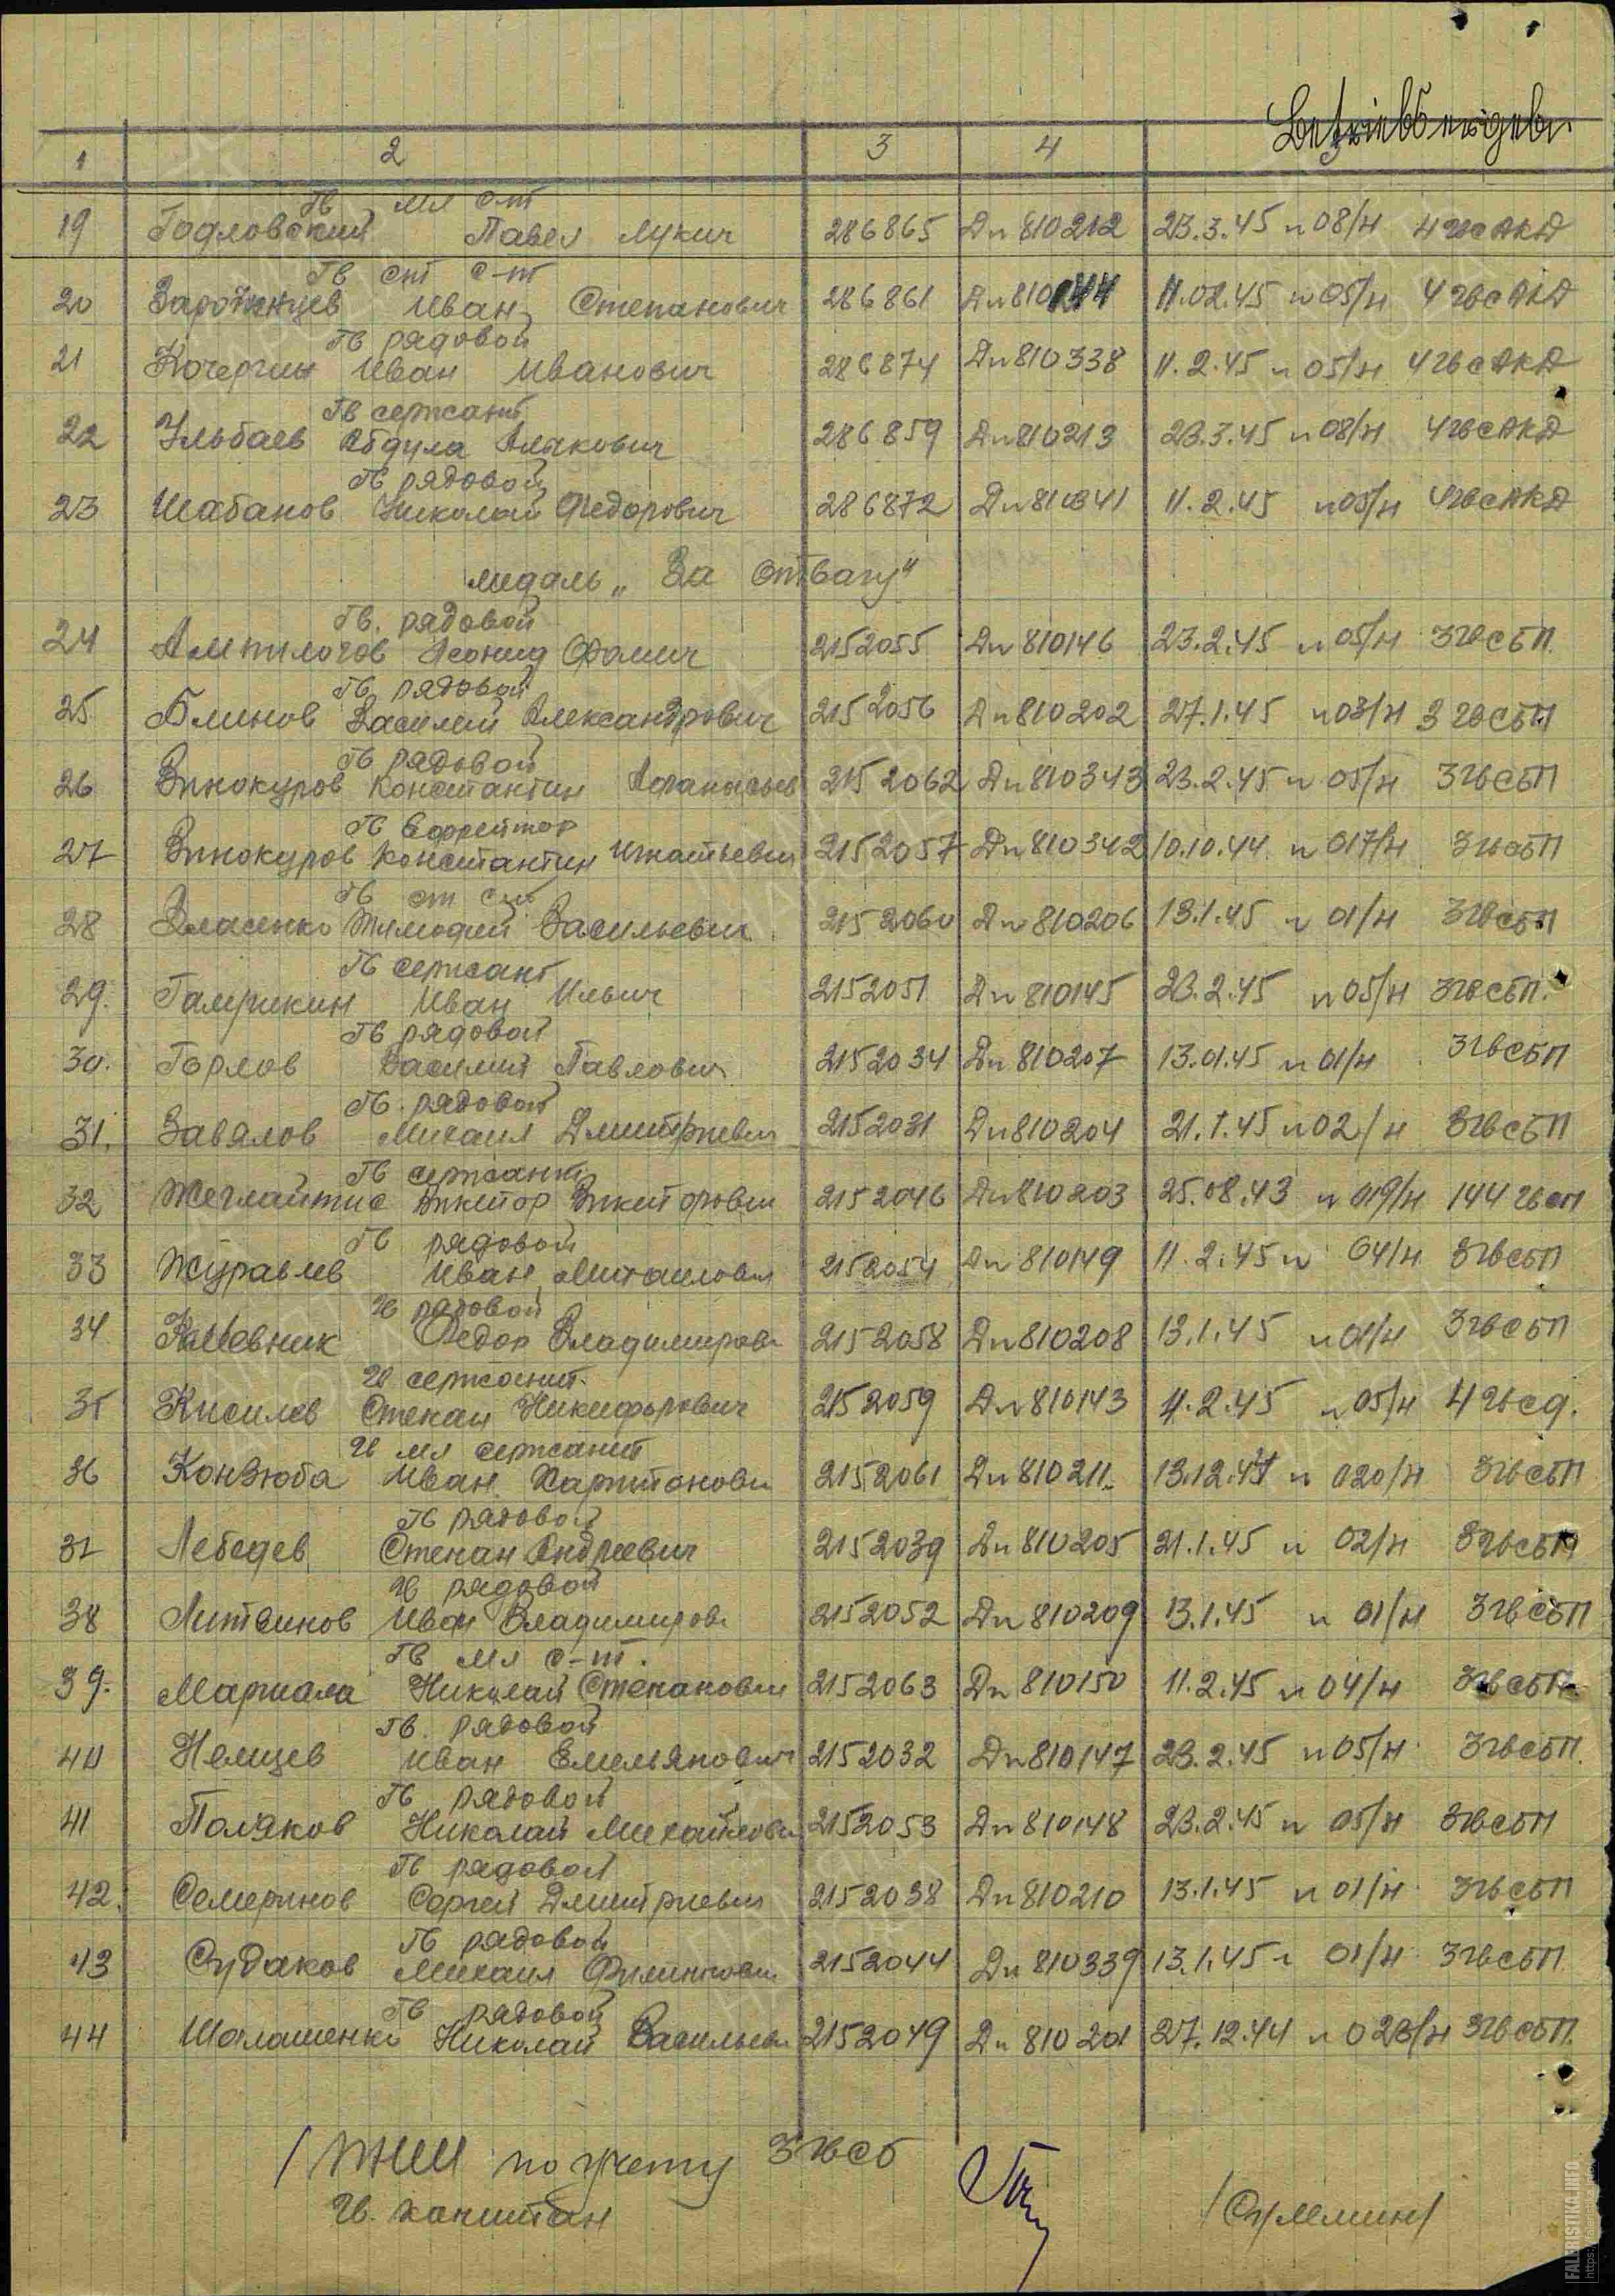 Betriebsergebn.
1 2 3 4
Гв мл с-т
19 Годловский Павел Лукич 286865 Дн 810212 23.3.45 н 08/н 4 гвсАКД
Гв ст с-т
20 Иван Степанович 286861 Дн 810144 11.02.45 н 05/н 4 гвсАКД
Гв рядовой
21 Кочергин Иван Иванович 286874 Дн 810338 11.2.45 н 05/н 4 гвсАКД
Гв сержант
22 Ульбаев Абдула 286859 Дн 810213 23.3.45 н 08/н 4 гвсАКД
Гв рядовой
23 Шабанов Николай Федорович 286872 Дн 810341 11.2.45 н 05/н 4 гвсАКД
медаль „За отвагу"
Гв. рядовой
24 Ампилогов Леонид Фомич 2152055 Дн 810146 23.2.45 н 05/н 3 гвСБП.
Гв. рядовой
25 Блинов Василий Александрович 2152056 Дн 810202 27.1.45 н 03/н 3 гвСБП
Гв рядовой
26 Винокуров Константин Афанасьев 2152062 Дн 810343 23.2.45 н 05/н 3 гвСБП
Гв Ефрейтор
27 Винокуров Константин Игнатьевич 2152057 Дн 810342 10.10.44 н 017/н 3 гвсБП
Гв ст с-т
28 Власенко Тимофей Васильевич 2152060 Дн 810206 13.1.45 н 01/н 3 гвСБП
Гв сержант
29. Иван Ильич 2152051 Дн 810145 23.2.45 н 05/н 3 гвСБП.
Гв рядовой
30. Горлов Василий Павлович 2152034 Дн 810207 13.01.45 н 01/н 3 гвСБП
Гв. рядовой
31. Завялов Михаил Дмитриевич 2152031 Дн 810204 21.1.45 н 02/н 3 гвСБП
Гв сержант
32 Жеглайтис Виктор Викторович 2152046 Дн 810203 25.08.43 н 019/н 144 гвсп
Гв рядовой
33 Журавлев Иван Михаилович 2152054 Дн 810149 11.2.45 н 04/н 3 гвСБП
Гв рядовой
34 Федор Владимирови 2152058 Дн 810208 13.1.45 н 01/н 3 гвСБП
Гв сержант.
35 Кисилев Степан Никифорович 2152059 Дн 810143 11.2.45 н 05/н 4 гвсд.
Гв мл сержант
36 Конзюба Иван Харитонович 2152061 Дн 810211. 13.12.44 н 020/н 3 гвСБП
Гв рядовой
37 Лебедев Степан Андреевич 2152039 Дн 810205 21.1.45 н 02/н 3 гвСБП
Гв рядовой
38 Литвинов Иван Владимирови 2152052 Дн 810209 13.1.45 н 01/н 3 гвСБП
Гв мл с-т.
39. Николай Степанович 2152063 Дн 810150 11.2.45 н 04/н 3 гвСБП.
Гв. рядовой
40 Немцев Иван Емельянович 2152032 Дн 810147 23.2.45 н 05/н 3 гвСБП.
Гв рядовой
41 Поляков Николай Михайлови 2152053 Дн 810148 23.2.45 н 05/н 3 гвСБП
Гв рядовой
42. Семеринов Сергей Дмитриевич 2152038 Дн 810210 13.1.45 н 01/н 3 гвСБП
Гв рядовой
43 Судаков Михаил Филиппович 2152044 Дн 810339 13.1.45 н 01/н 3 гвСБП
Гв рядовой
44 Шалашенко Николай Васильеви 2152049 Дн 810201 27.12.44 н 023/н 3 гвСБП.
по учету 3 гвСБ
гв. капитан
FALERISTIKA.INFO